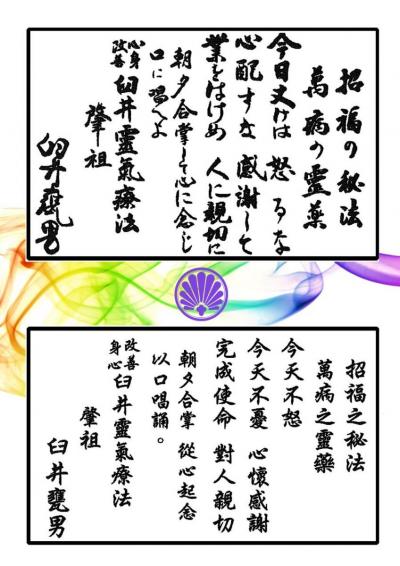 招福の秘法
萬病の霊薬
今日丈けは 怒るな
心配すな 感謝して
業をはけめ 人に親切に
朝夕合掌して心に念じ
口に唱へよ
心身改善 臼井靈氣療法
肇祖
臼井甕男
招福之秘法
萬病之靈藥
今天不怒
今天不憂 心懷感謝
完成使命 對人親切
朝夕合掌 從心起念
以口唱誦。
身心改善 臼井靈氣療法
肇祖
臼井甕男